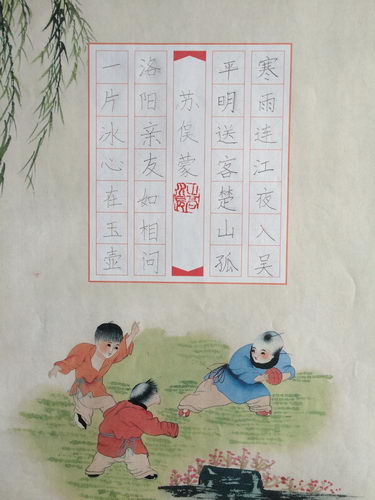 寒雨连江夜入吴
平明送客楚山孤
苏俣蒙
洛阳亲友如相问
一片冰心在玉壶